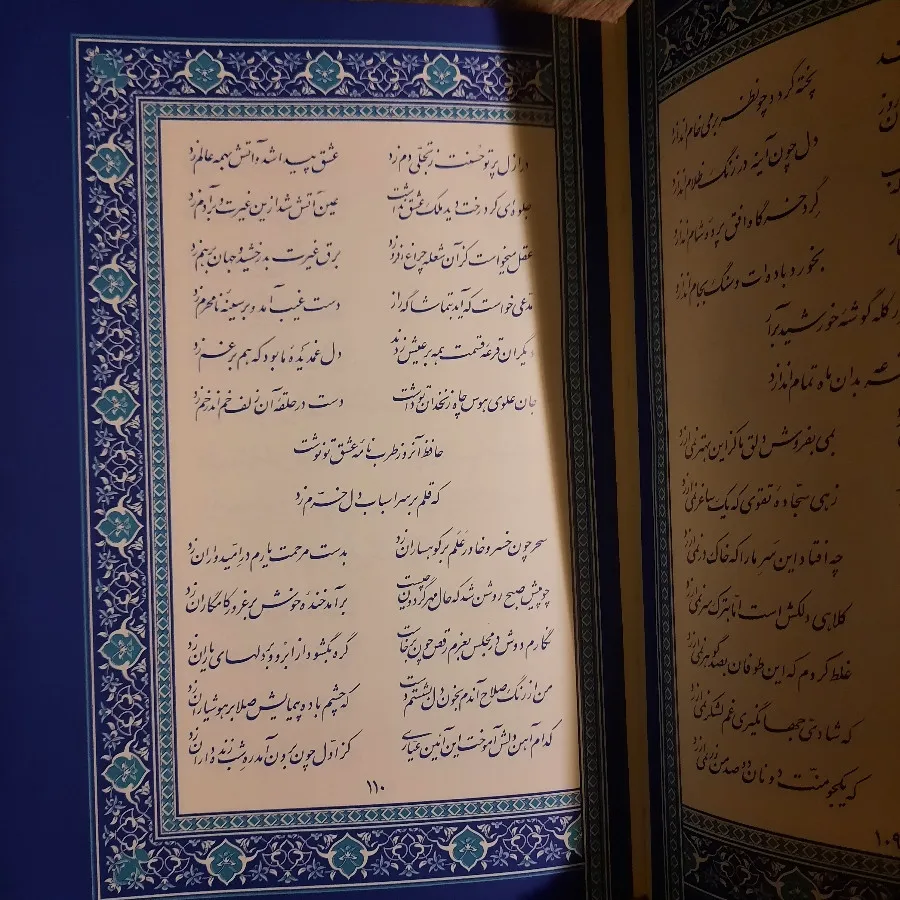 پخته گردد چو نظر بر می خام اندازد
دل چون آینه در زنگ ظلام اندازد
گرد خرگاه افق پرده شام اندازد
بخورد باده‌ات و سنگ بجام اندازد
کله گوشهٔ خورشید برآر
بدان ماه تمام اندازد
بمی بفروش دلق ما کزین بهتر نمی‌ارزد
زهی سجادهٔ تقوی که یک ساغر نمی‌ارزد
چه افتاد این سر ما را که خاک در نمی‌ارزد
کلاهی دلکش است اما بترک سر نمی‌ارزد
غلط کردم که این طوفان بصد گوهر نمی‌ارزد
که شادیّ جهانگیری غم لشکر نمی‌ارزد
که یکجو منّت دونان دو صد من زر نمی‌ارزد
۱۰۹
در ازل پرتو حسنت ز تجلّی دم زد عشق پیدا شد و آتش بهمه عالم زد
جلوه‌ای کرد رخت دید ملک عشق نداشت عین آتش شد ازین غیرت و بر آدم زد
عقل میخواست کز آن شعله چراغ افروزد برق غیرت بدرخشید و جهان برهم زد
مدّعی خواست که آید بتماشاگه راز دست غیب آمد و بر سینهٔ نامحرم زد
دیگران قرعهٔ قسمت همه بر عیش زدند دل غمدیدهٔ ما بود که هم بر غم زد
جان علوی هوس چاه زنخدان تو داشت دست در حلقهٔ آن زلف خم اندر خم زد
حافظ آنروز طربنامهٔ عشق تو نوشت
که قلم بر سر اسباب دل خرّم زد
سحر چون خسرو خاور علم بر کوهساران زد بدست مرحمت یارم در امیدواران زد
چو پیش صبح روشن شد که حال مهر گردون چیست برآمد خندهٔ خوش بر غرور کامگاران زد
نگارم دوش در مجلس بعزم رقص چون برخاست گره بگشود از ابرو و بر دلهای یاران زد
من از رنگ صلاح آندم بخون دل بشستم دست که چشم باده پیمایش صلا بر هوشیاران زد
کدام آهن دلش آموخت این آئین عیّاری کز اوّل چون برون آمد ره شب زنده داران زد
۱۱۰